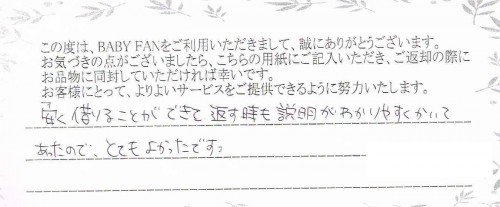 この度は、BABY FANをご利用いただきまして、誠にありがとうございます。
お気づきの点がございましたら、こちらの用紙にご記入いただき、ご返却の際に
お品物に同封していただければ幸いです。
お客様にとって、よりよいサービスをご提供できるように努力いたします。
安く借りることができて返す時も説明がわかりやすくかいて
あったので、とてもよかったです。